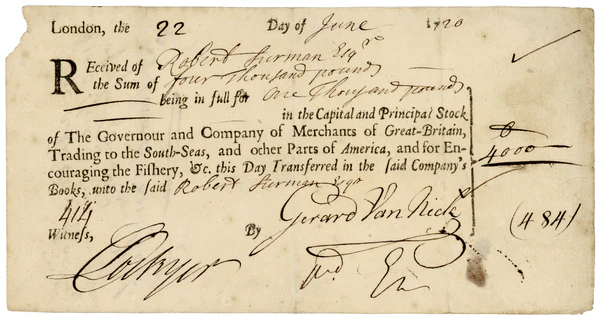 London, the 22 Day of June 1720
REceived of Robert Surman Esqr
the Sum of four Thousand pounds
being in full for One Thousand pounds
in the Capital and Principal Stock
of The Governour and Company of Merchants of Great-Britain,
Trading to the South-Seas, and other Parts of America, and for En-
couraging the Fishery, &c. this Day Transferred in the said Company's
Books, unto the said Robert Surman Esqr
£
4000
414
Witness, By Gerard Van Neck
(484)